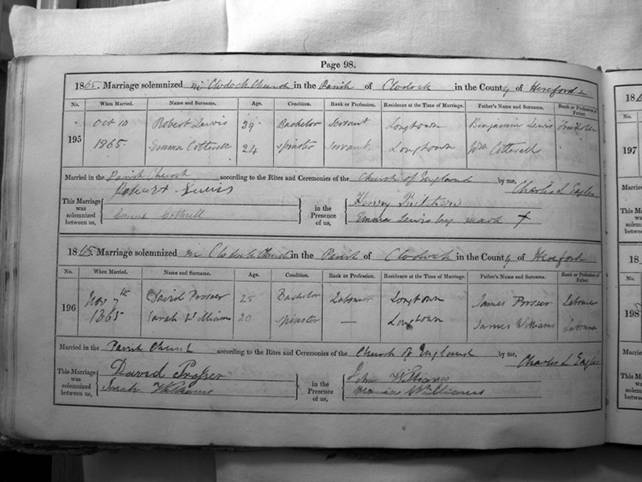 Page 98.
1865. Marriage solemnized in Clodock Church in the Parish of Clodock in the County of Hereford
No. When Married. Name and Surname. Age. Condition. Rank or Profession. Residence at the Time of Marriage. Father's Name and Surname. Rank or Profession of Father.
195 Oct 10 Robert Lewis 29 Bachelor Servant Longtown Benjamin Lewis
1865 Emma Cotterell 24 Spinster Servant Longtown Wm Cotterell
Married in the Parish Church according to the Rites and Ceremonies of the Church of England by me, Charles L
This Marriage was solemnized between us, Robert Lewis in the Presence of us, Henry
Emma Cotterell Emma Lewis by mark X
1865. Marriage solemnized in Clodock Church in the Parish of Clodock in the County of Hereford
No. When Married. Name and Surname. Age. Condition. Rank or Profession. Residence at the Time of Marriage. Father's Name and Surname. Rank or Profession of Father.
196 Nov 7th David Prosser 25 Bachelor Labourer Longtown James Prosser Labourer
1865 Sarah William 20 Spinster — Longtown James Williams Labourer
Married in the Parish Church according to the Rites and Ceremonies of the Church of England by me, Charles L
This Marriage was solemnized between us, David Prosser in the Presence of us, John Williams
Sarah Williams Williams
197
198